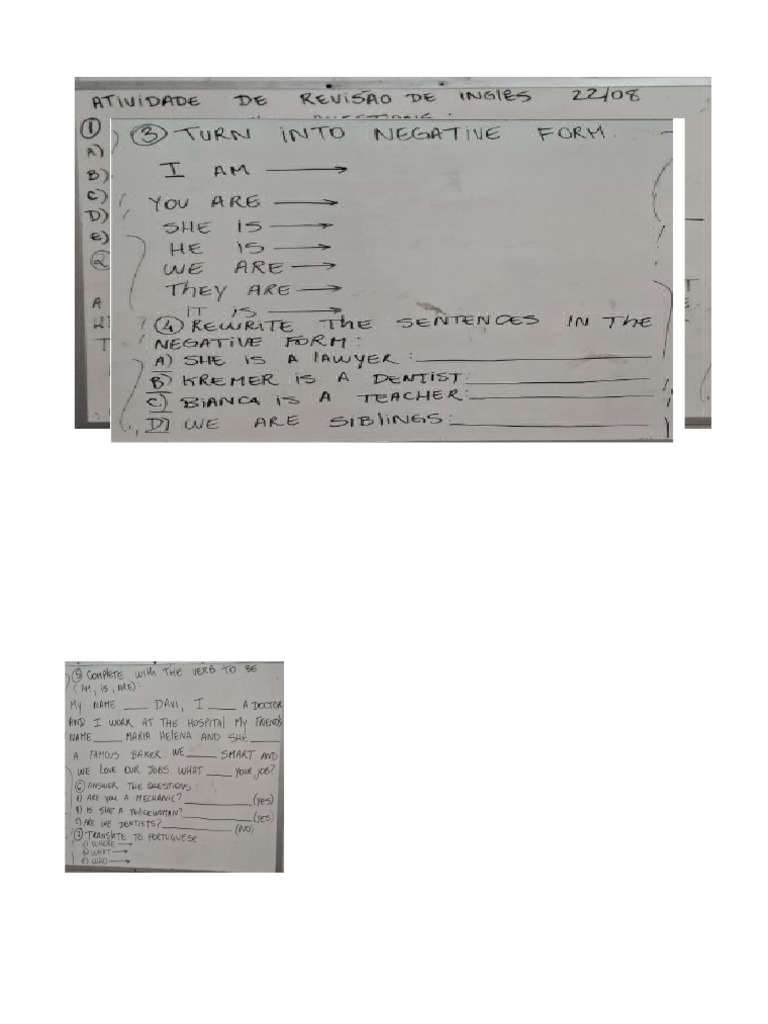 ATIVIDADE DE REVISÃO DE INGLÊS 22/08
①
A)
B)
C)
D)
E)
②
A
③ TURN INTO NEGATIVE FORM.
I AM →
YOU ARE →
SHE IS →
HE IS →
WE ARE →
THEY ARE →
IT IS →
④ REWRITE THE SENTENCES IN THE
NEGATIVE FORM:
A) SHE IS A LAWYER: ____
B) KREMER IS A DENTIST: ____
C) BIANCA IS A TEACHER: ____
D) WE ARE SIBLINGS: ____
⑤ COMPLETE WITH THE VERB TO BE
(AM, IS, ARE):
MY NAME ____ DAVI, I ____ A DOCTOR
AND I WORK AT THE HOSPITAL MY FRIENDS
NAME ____ MARIA HELENA AND SHE ____
A FAMOUS BAKER. WE ____ SMART AND
WE LOVE OUR JOBS. WHAT ____ YOUR JOB?
⑥ ANSWER THE QUESTIONS:
A) ARE YOU A MECHANIC? ____ (YES)
B) IS SHE A POLICEWOMAN? ____ (YES)
C) ARE WE DENTISTS? ____ (NO)
⑦ TRANSLATE TO PORTUGUESE
A) WHERE →
B) WHAT →
C) WHO →